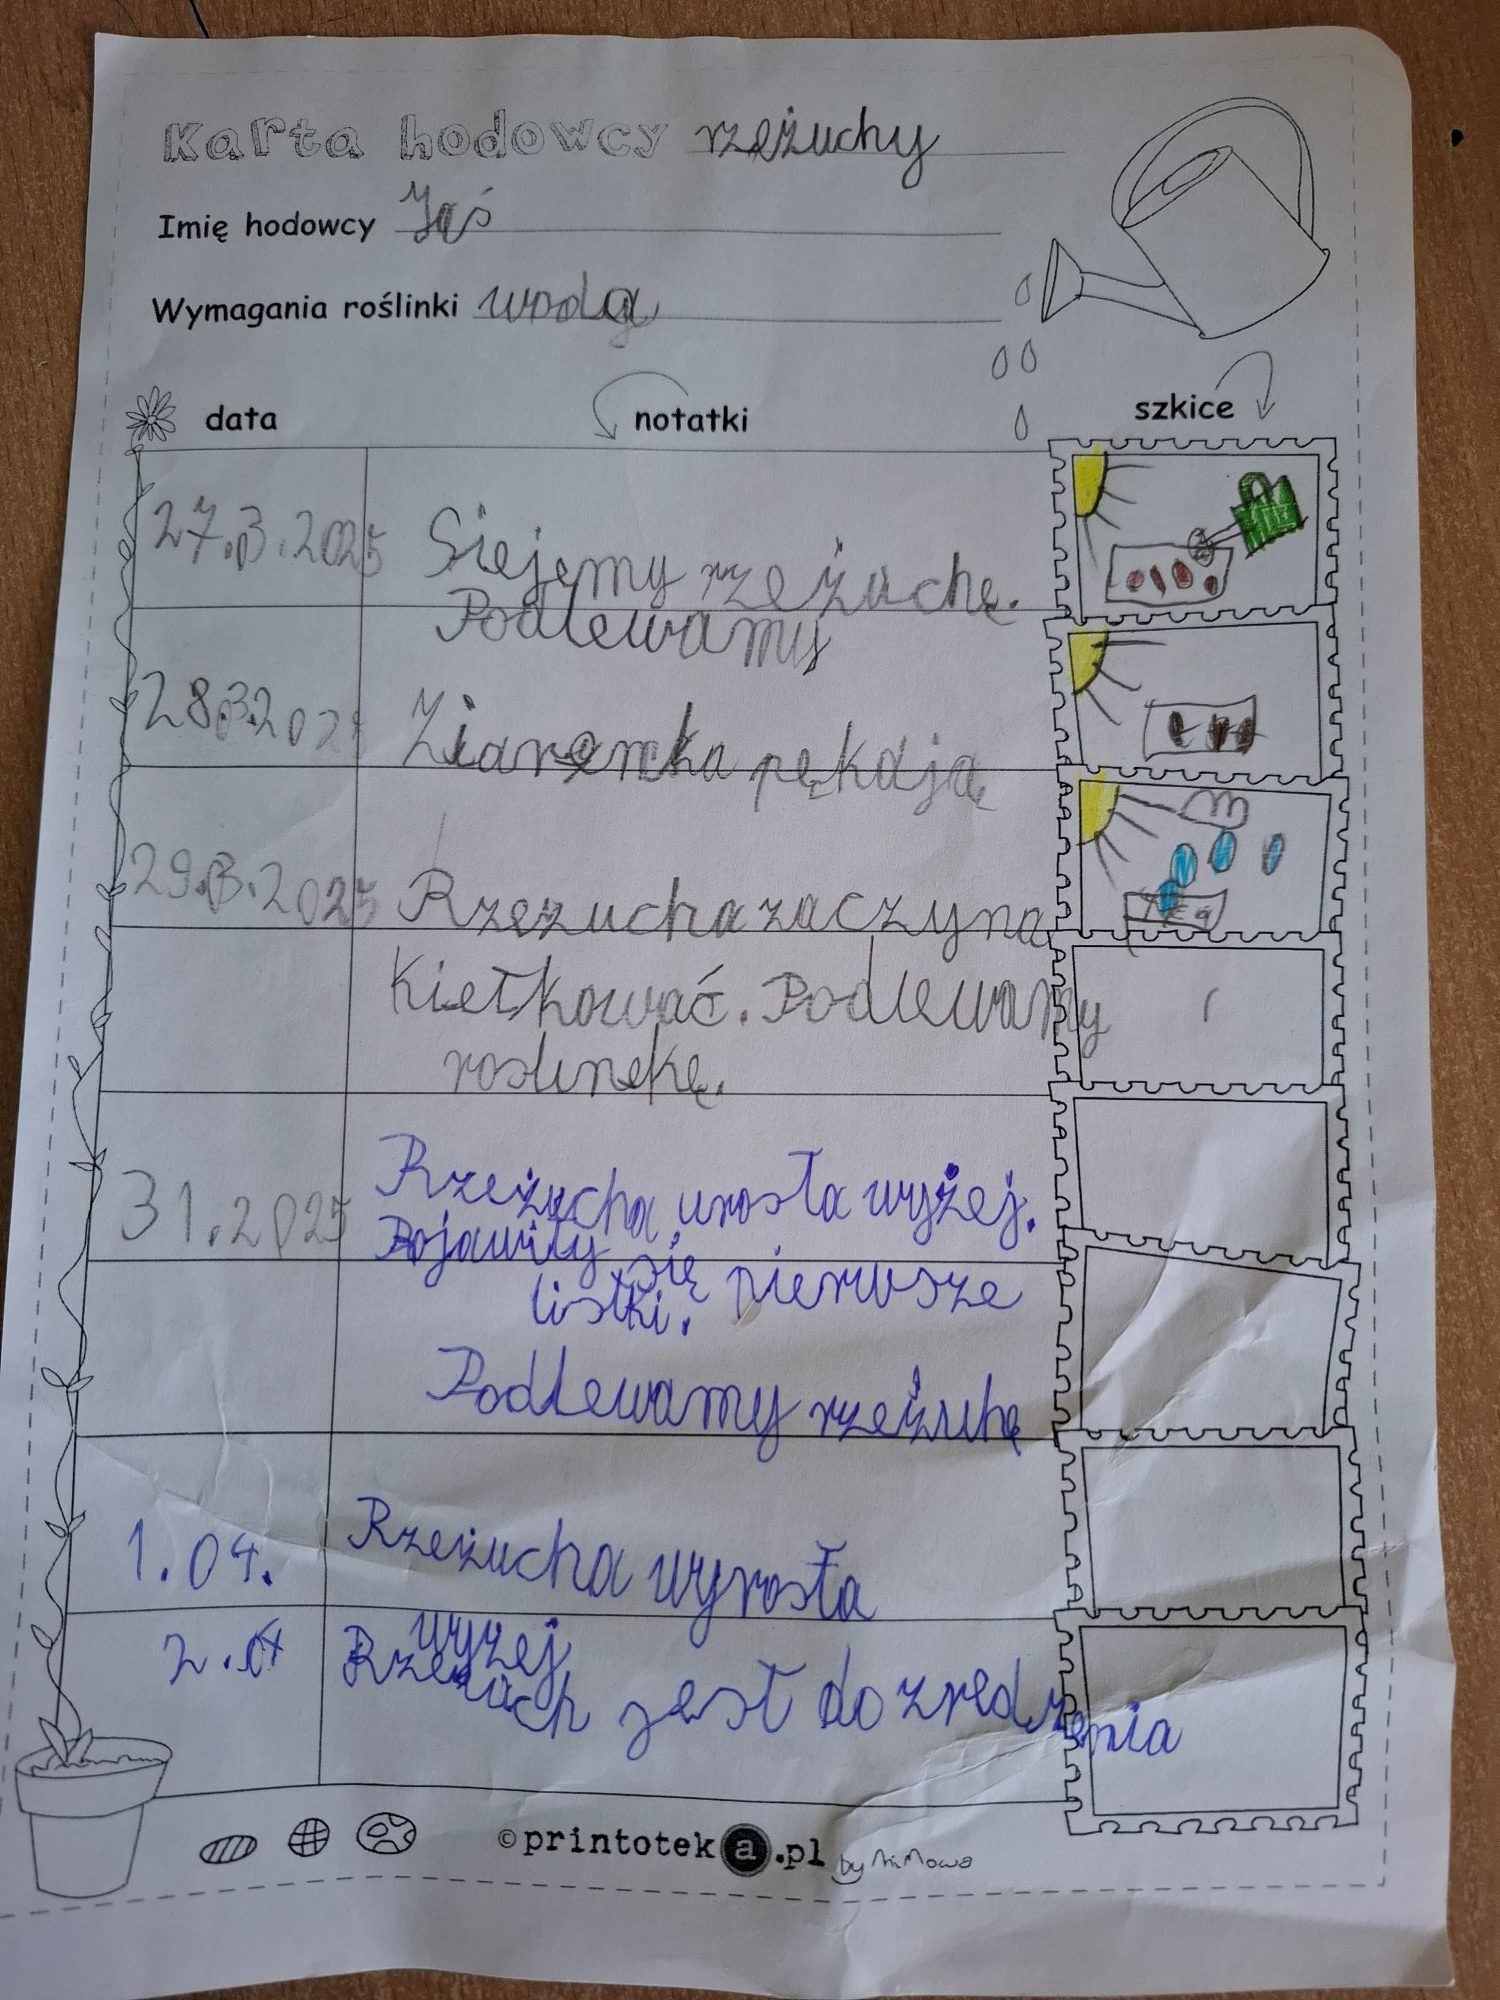 Karta hodowcy rzeżuchy
Imię hodowcy Jaś
Wymagania roślinki woda
data notatki szkice
27.3.2025 Siejemy rzeżuchę.
Podlewamy
28.3.2025 Ziarenka pękają
29.3.2025 Rzeżucha zaczyna
kiełkować. Podlewamy
roslinekę.
31.2025 Rzeżucha urosła wyżej.
Pojawiły się pierwsze
listki.
Podlewamy rzeżuhę
1.04. Rzeżucha wyrosła
wyzej
2.04 jest do zredzenia
©printoteka.pl by MiMowa